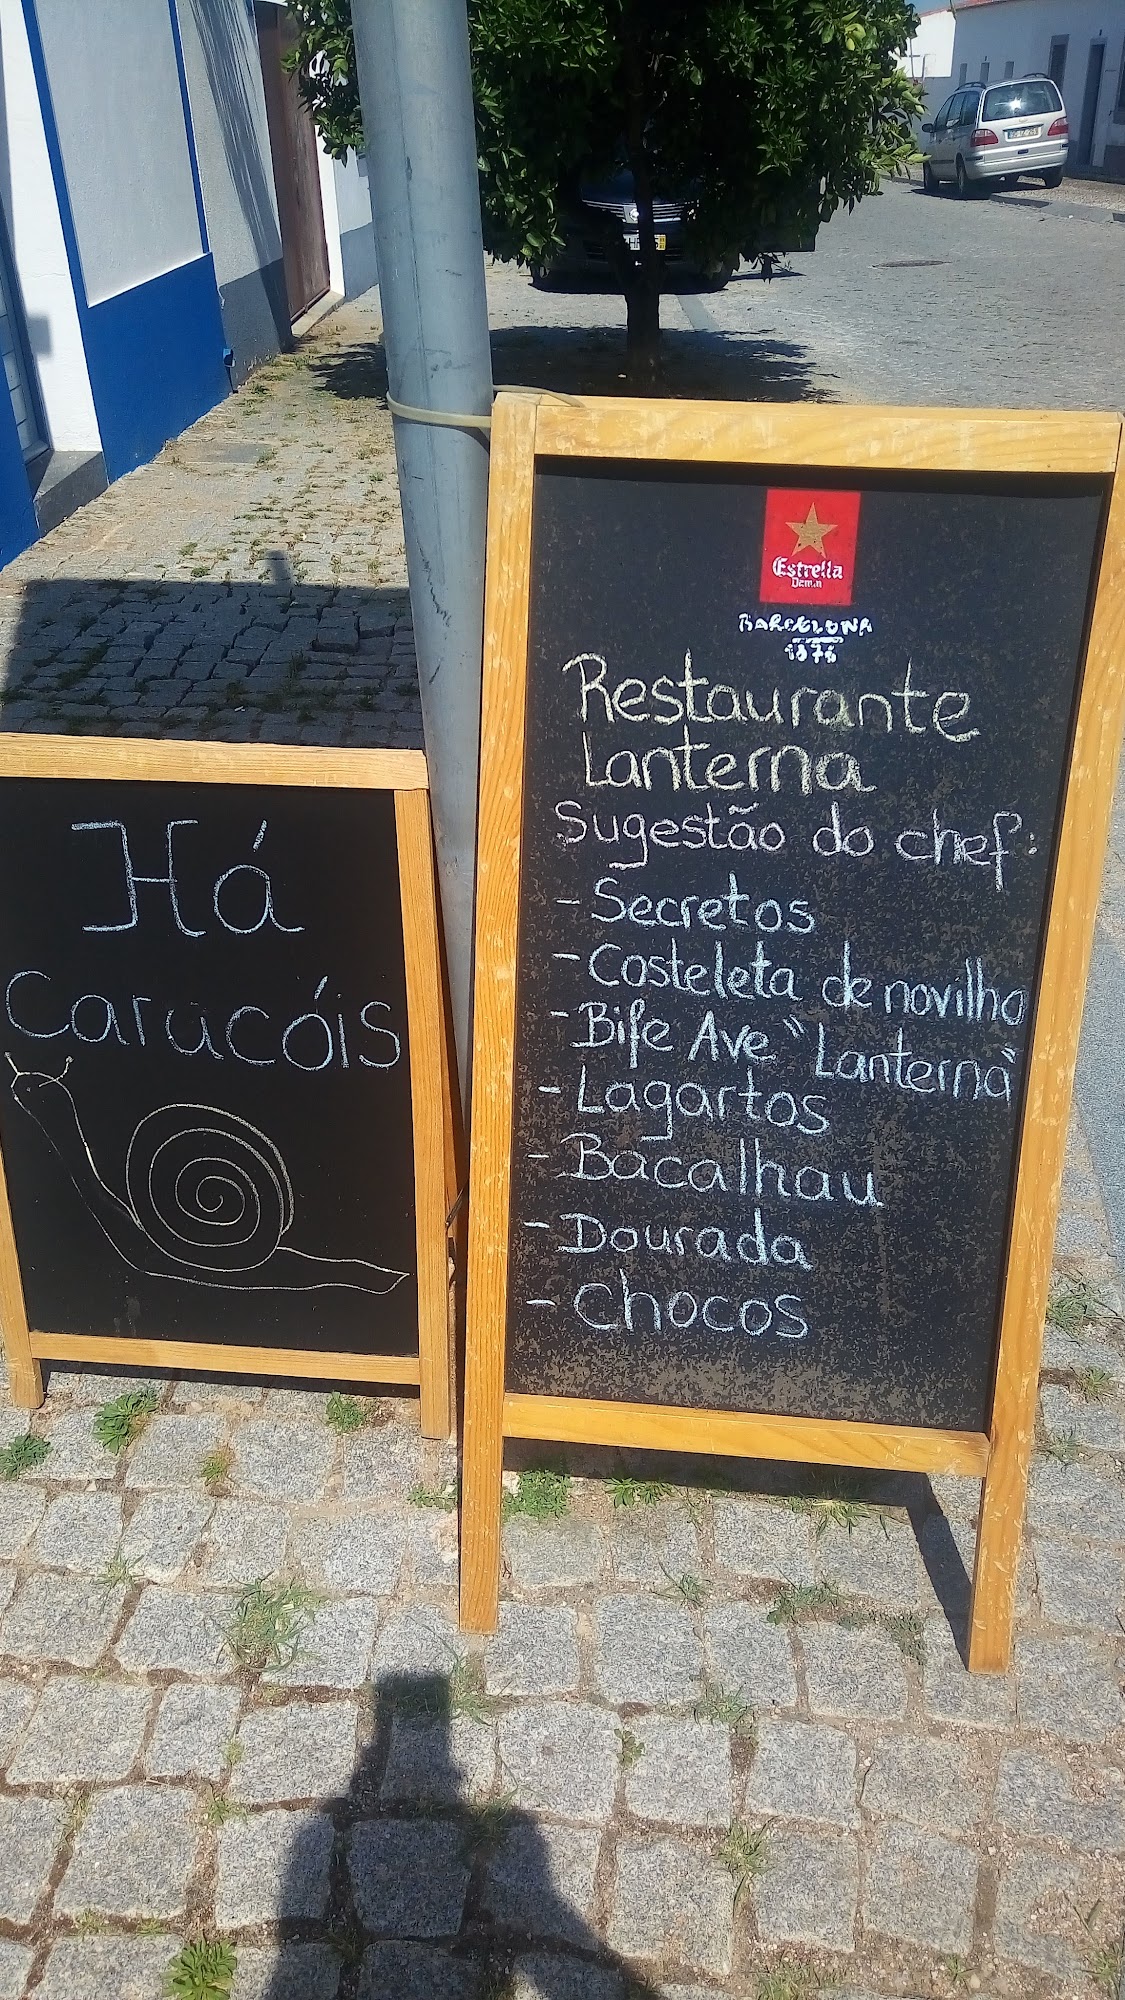 Há
Carucóis
Estrella
Damm
BARCELONA
1876
Restaurante
Lanterna
Sugestão do chef:
- Secretos
- Costeleta de novilho
- Bife Ave "Lanterna"
- Lagartos
- Bacalhau
- Dourada
- Chocos